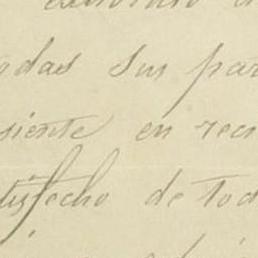 odas sus par
siente en recr
tisfecho de tod